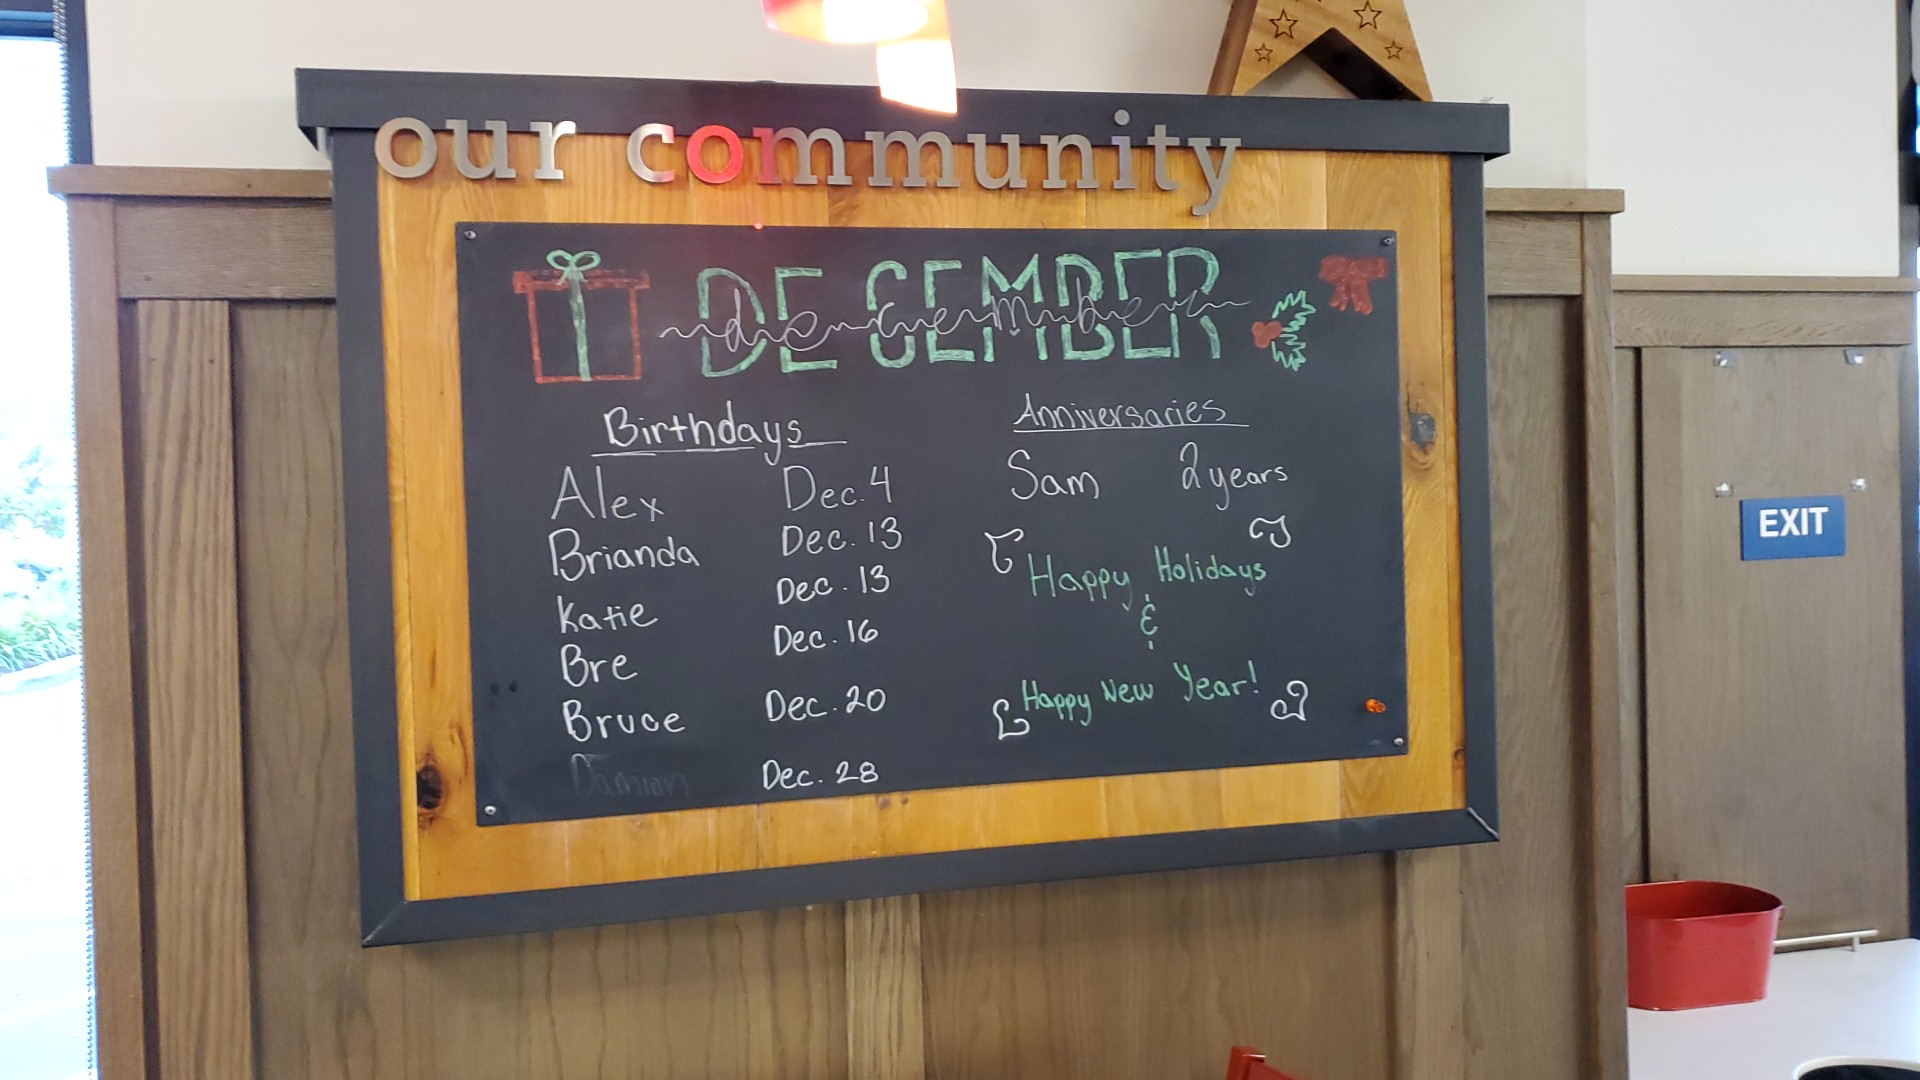 our community
DECEMBER
december
Birthdays
Alex Dec. 4
Brianda Dec. 13
Katie Dec. 13
Bre Dec. 16
Bruce Dec. 20
Damian Dec. 28
Anniversaries
Sam 2 years
Happy Holidays
&
Happy New Year!
EXIT